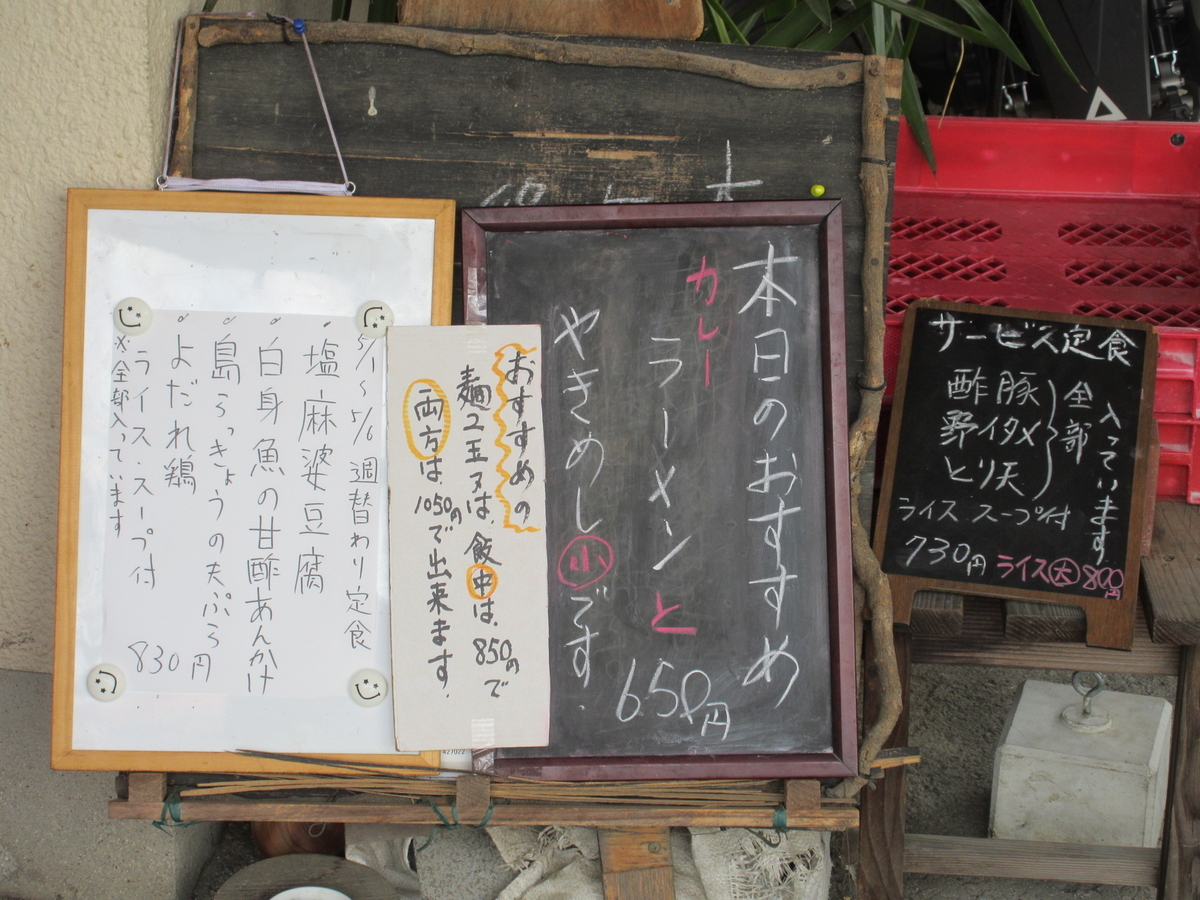 本日のおすすめ
カレーラーメンと
やきめし小です.
650円
おすすめの
麺2玉は、飯中は、850円で
両方は、1050円で出来ます.
5/1〜5/6 週替わり定食
塩麻婆豆腐
白身魚の甘酢あんかけ
島らっきょうの天ぷら
よだれ鶏
ライス・スープ付
※全部入っています
830円
427022
サービス定食
酢豚
野菜イタメ
とり天
全部
入っています
ライス スープ付
730円 ライス大 800円